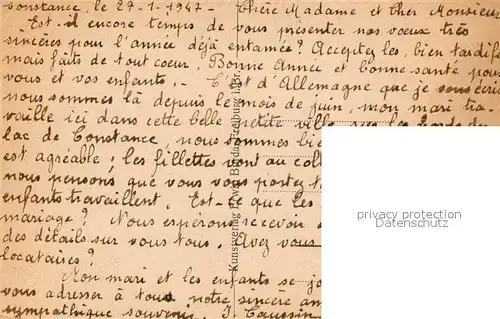 Constance, le 27-1-1947- Chère Madame et Cher Monsieur
Est-il encore temps de vous présenter nos vœux très
sincères pour l'année déjà entamée? Acceptez les, bien tardifs
mais faits de tout cœur. Bonne Année et bonne santé pour
vous et vos enfants.- C'est d'Allemagne que je vous écris
nous sommes là depuis le mois de juin, mon mari tra-
vaille ici dans cette belle petite ville, sur les bords du
lac de Constance, nous sommes bie
est agréable; les fillettes vont au coll
nous pensons que vous vous portez t
enfants travaillent. Est-ce que les
mariage? Nous espérons recevoir
des détails sur vous tous. Avez vous
locataires?
Mon mari et les enfants se jo
vous adresser à tous notre sincère am
sympathique souvenir. J. Caussin
Kunstverlag Freiburg i. Br.
privacy protection
Datenschutz